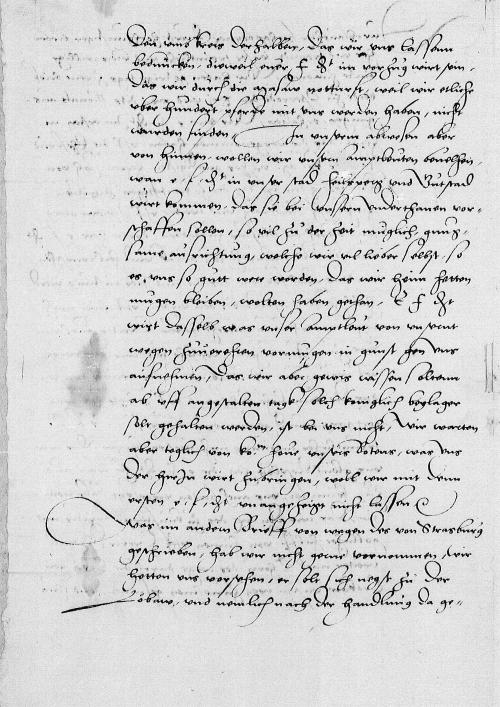 Das uns kreis derhalben, das wir uns lassen
beduncken, dieweil euer f g im vorzug wirt sein,
das wir durch die massaw notturft, weil wir etliche
uber hundert pferde mit uns werden haben, nicht
wurden finden. In unserm abwesen aber
von hinnen, wollen wir unsern amptleuten bevelhen,
wan e f g in unser stad und Butstad
wirt kommen, das sie bei unsern underthanen vor-
schaffen sollen, so vil zu der zeit muglich, gnug-
same ausrichtung, welche wir vil lieber selbst, so
es uns so gutt were worden, das wir heim hetten
mugen bleiben, wolten haben gethan, E f g
wirt dasselb, was unser amptleut von unsernt
wegen vormugen in gunst gen uns
aufnehmen, das wir aber gewis wissen soltenn
ab uff angestalten tagk solch koniglich beylager
solt gehalten werden, ist bei uns nicht, wir warten
aber teglich von ko hove unsers botens, was uns
der hirin wirt zubringen, woll wir mit dem
ersten e f g unangezeigt nicht lassen
Was im andern Brieff von wegen des von Strasburg
geschrieben, hab wir nicht gerne vornommen, wir
hetten uns vorsehen, er solt sich negst zu der
Lobaw, und nemlich nach der handlung da ge-